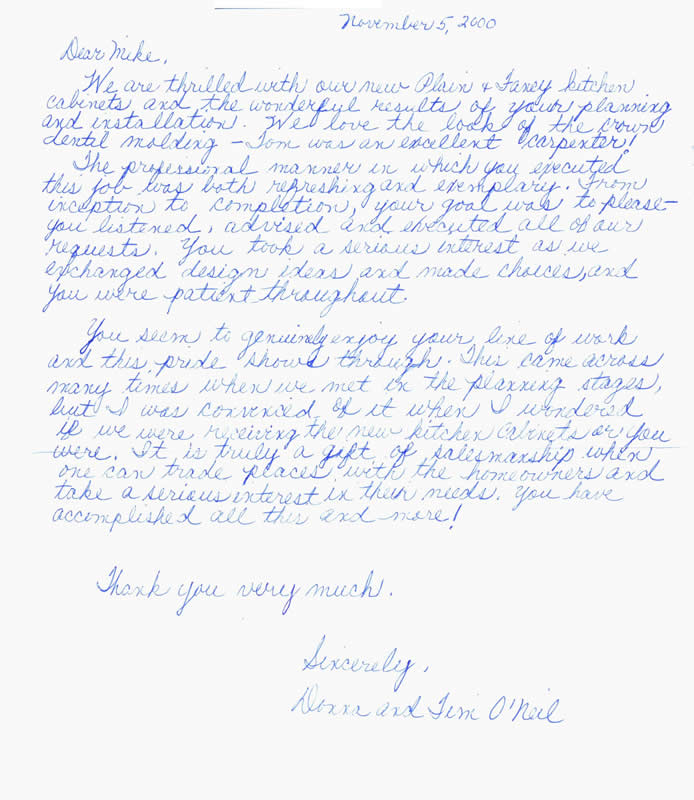 November 5, 2000
Dear Mike,
We are thrilled with our new Plain & Fancy kitchen
cabinets and the wonderful results of your planning
and installation. We love the look of the crown
dental molding – Tom was an excellent carpenter!
The professional manner in which you executed
this job was both refreshing and exemplary. From
inception to completion, your goal was to please–
you listened, advised and executed all of our
requests. You took a serious interest as we
exchanged design ideas and made choices, and
you were patient throughout.
You seem to genuinely enjoy your line of work
and this pride shows through. This came across
many times when we met in the planning stages,
but I was convinced of it when I wondered
if we were receiving the new kitchen cabinets or you
were. It is truly a gift of salesmanship when
one can trade places with the homeowners and
take a serious interest in their needs. You have
accomplished all this and more!
Thank you very much.
Sincerely,
Donna and Tim O'Neil